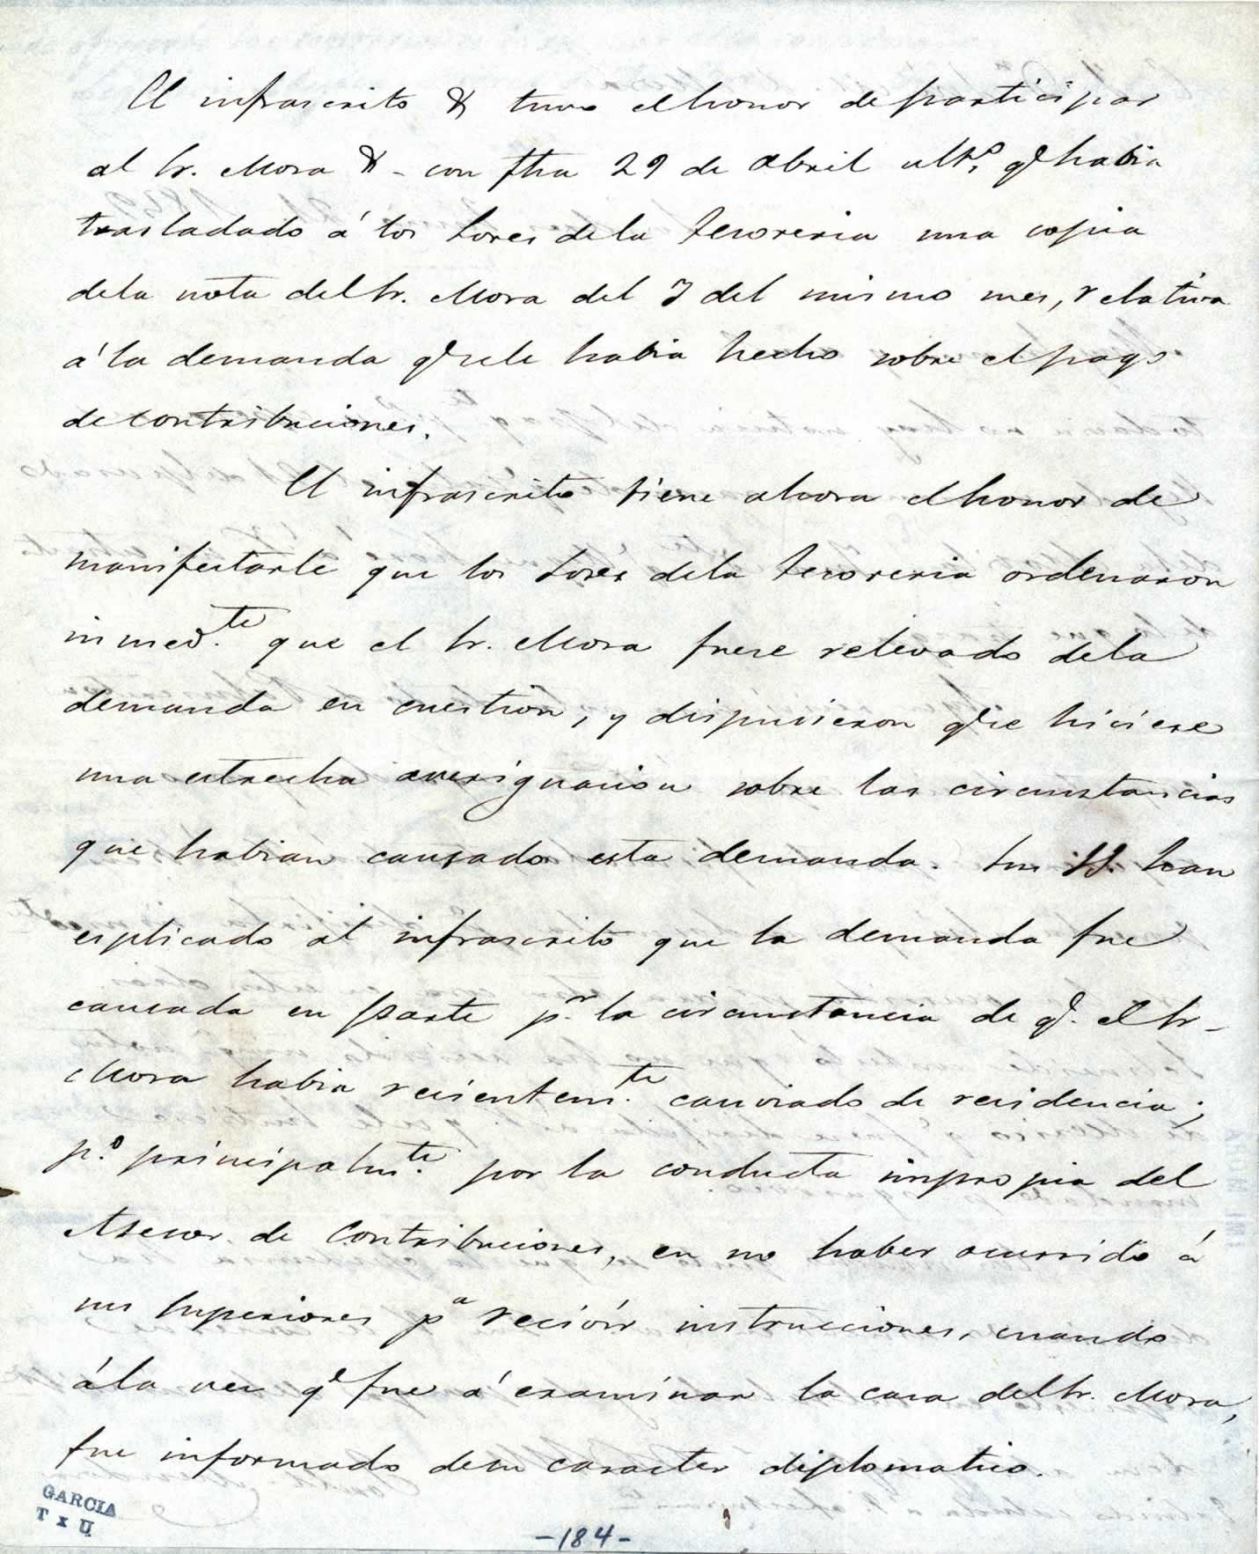 El infrascrito & tuvo el honor de participar
al Sr. Mora & - con fha 29 de Abril ultº, qe habia
trasladado á los Lores de la Tesoreria una copia
dela nota del Sr. Mora del 7 del mismo mes, relativa
á la demanda qe sele habia hecho sobre el pago
de contribuciones.
El infrascrito tiene ahora el honor de
manifestarle que los Lores dela Tesoreria ordenaron
inmed.te que el Sr. Mora fuese relevado dela
demanda en cuestion, y dispusieron qe se hiciese
una estrecha averiguacion sobre las circunstancias
que habian causado esta demanda. Sus SS. han
esplicado al infrascrito que la demanda fue
causada en parte p.r la circunstancia de q.e el Sr.
Mora habia recientem.te camviado de residencia;
p.o principalm.te por la conducta impropia del
Asesor de Contribuciones, en no haber ocurrido á
sus Superiores pa recivir instrucciones, cuando
á la vez qe fue á examinar la casa del Sr. Mora,
fue informado desu caracter diplomatico.
GARCIA
T x II
-184-